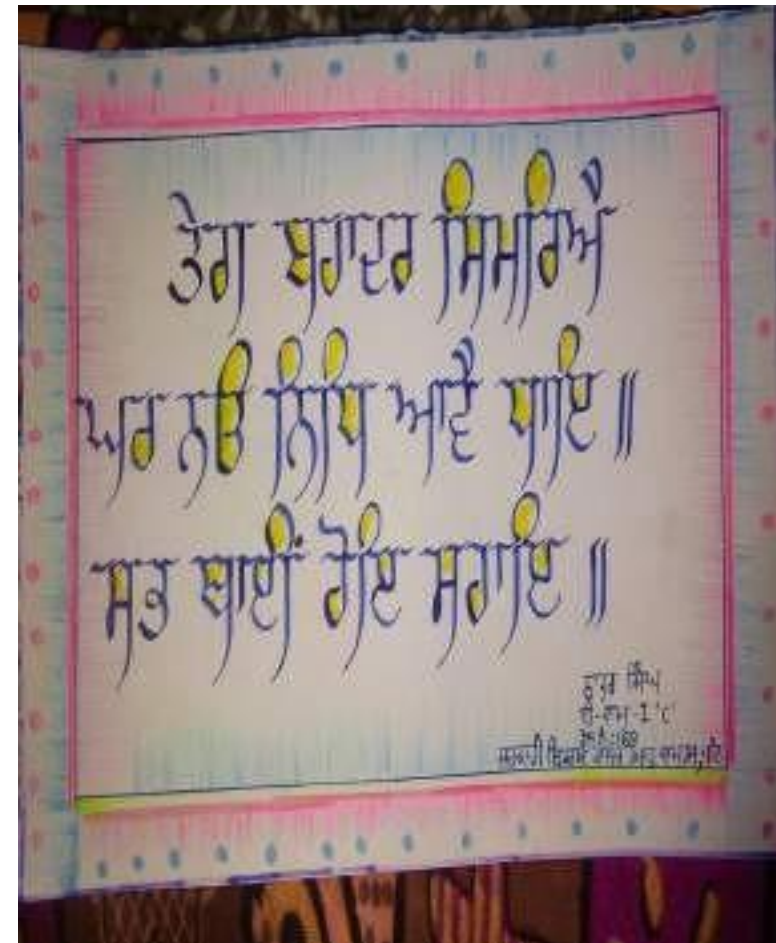 ਤੇਗ ਬਹਾਦਰ ਸਿਮਰਿਐ
ਘਰ ਨਉ ਨਿਧਿ ਆਵੈ ਧਾਇ॥
ਸਭ ਥਾਈਂ ਹੋਇ ਸਹਾਇ॥
ਸਿੰਘ
-1 'C'